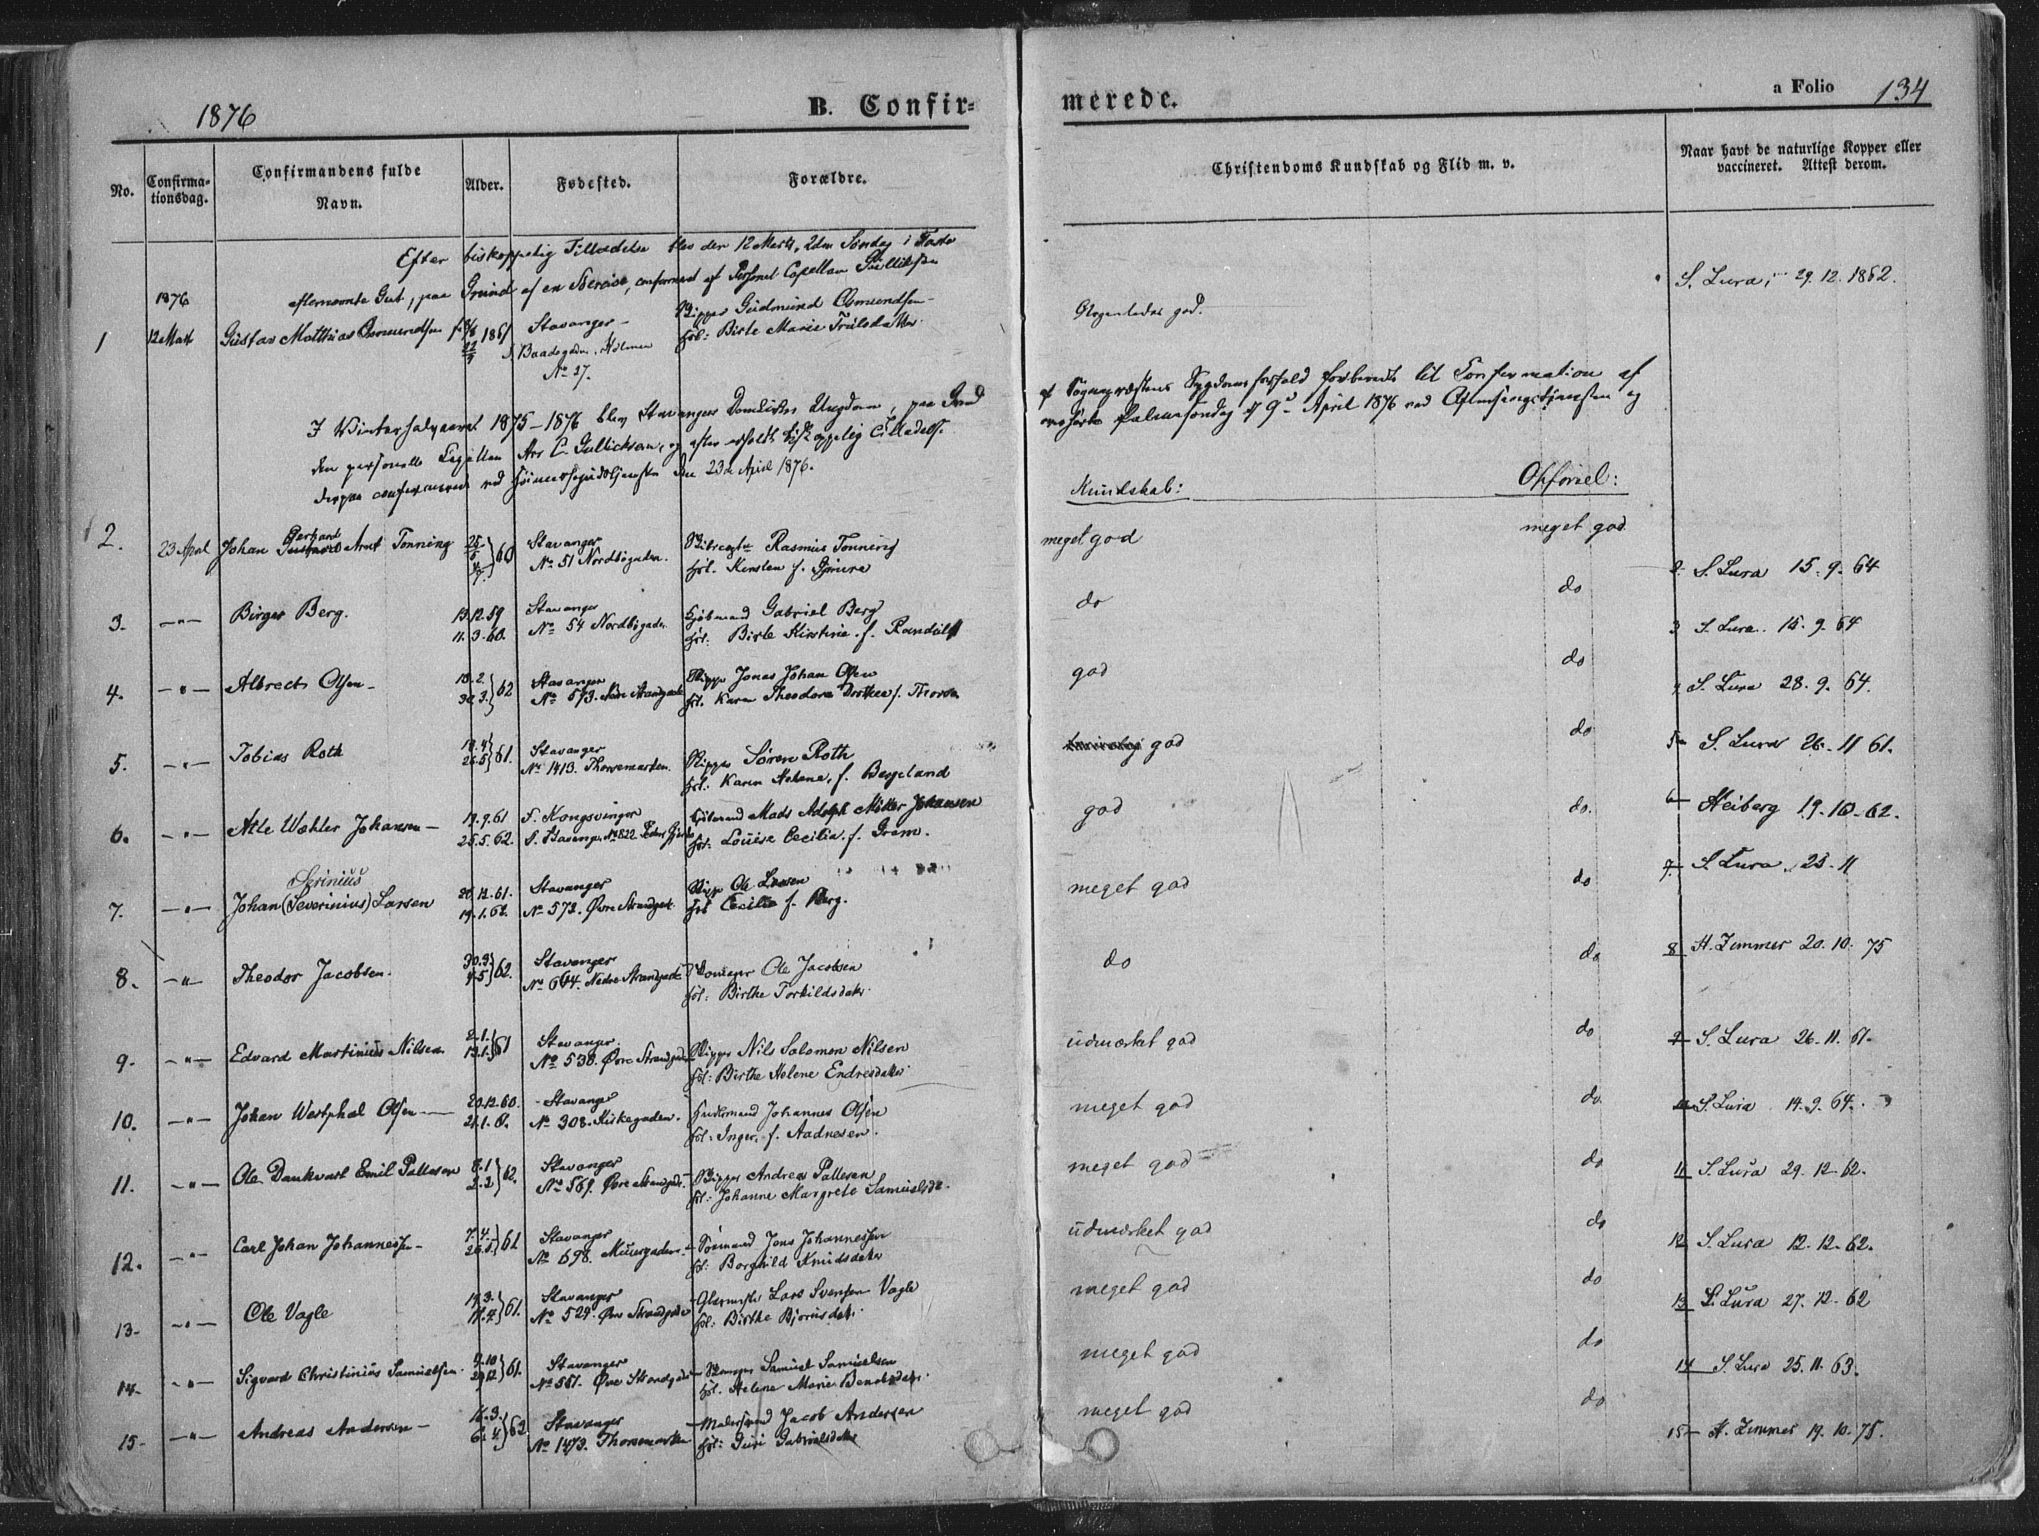 1876
B. Confir-
merede.
a Folio 134
No.
Confirma-
tionsdag.
Confirmandens fulde
Navn.
Alder.
Fødested.
Forældre.
Christendoms Kundskab og Flid m. v.
Naar havt de naturlige Kopper eller
vaccineret. Attest derom.
Efter biskoppelig Tilladelse blev den 12 Marts, 2den Søndag i Faste
efternævnte Gut, paa Grund af en Søreise, confirmeret af Personel Capellan Gullichsen
1876
1 12 Marts Gustav Matthias Osmundsen 1861 Stavanger
Baadegaden, Holmen
No 27.
Skipper Gudmund Osmundsen
Hol: Birte Marie Trulsdatter.
Nogenledes god.
S. Lura, 29.12.1862.
I Winterhalvaaret 1875-1876 blev Stavangers Domkirkes Ungdom, paa Grund
af Sognepræstens Sygdomsforfald forberedt til Confirmation af
den personelle Capellan C. Gullichsen, og efter erholdt biskoppelig Tilladelse
Palmesøndag 9d April 1876 ved Aftensangstjenesten og
derpaa confirmerede ved Høimessegudstjenesten den 23de April 1876.
Kundskab:
Opførsel:
2. 23 April Johan Gerhard Arnt Tonning 60 Stavanger
No 51 Nordbøgaden.
Rasmus Tonning
Hol. Kirsten f. Gjmure
meget god
meget god
2. S. Lura 15.9.64
3. -"- Birger Berg. 13.12.59
11.3.60.
Stavanger
No 54 Nordbøgaden
Kjøbmand Gabriel Berg
Hol: Birte Kirstine f. Randulff
do
do
3 S. Lura. 15.9.64
4. -"- Albrect Olsen 18.2.
30.3. } 62
Stavanger
No 573. Nedre Strandgade
Skipper Jonas Johan Olsen
Hol. Karen Theodora Dorthea f. Thorsen
god
do
4 S. Lura 28.9.64.
5. -"- Tobias Roth 19.4
26.5 } 61.
Stavanger
No 1413. Thorsemarken.
Skipper Søren Roth
Hol. Karen Helene, f. Bergeland
god
do
5 S. Lura 26.11 61.
6. -"- Atle Wahler Johansen 19.9.61
25.5.62.
F. Kongsvinger
S. Stavanger No 822 Peder
Mads Adolph Møller Johansen
Hol. Louise Cecilia f. Gram.
god
do.
6 Heiberg 19.10.62.
7. -"- Johan Serinius (Severinius) Larsen 20.12.61.
19.1.62.
Stavanger
No 572. Øvre Strandgade.
Skipper Ole Larsen
Hol Cecilia f. Berg.
meget god
do
7. S. Lura 25.11
8. -"- Theodor Jacobsen. 30.3.
4.5 } 62.
Stavanger
No 644. Nedre Strandgade
Ole Jacobsen
Hol: Birthe Torkildsdatter.
do
do
8 H. Zimmer 20.10.75
9. -"- Edvard Martinius Nilsen 2.1.
13.1. } 61
Stavanger.
No 538. Øvre Strandgade
Skipper Nils Salomon Nilsen
Hol: Birthe Helene Endresdatter.
udmærket god
do
9 S. Lura 26.11.61.
10. -"- Johan Westphal Olsen 20.12.60.
21.1.61.
Stavanger
No 308. Kirkegaden.
Johannes Olsen
Hol: Inger, f. Aadnesen.
meget god
do
10 S. Lura 14.9.64.
11. -"- Ole Dankvart Emil Pallesen 8.1
2.2 } 62.
Stavanger
No 569. Øvre Strandgade.
Skipper Andreas Pallesen
Hol: Johanne Margrete Samuelsdr.
meget god
do
11 S. Lura 29.12.62.
12. -"- Carl Johan Johannessen 7.4.
26.5. } 61
Stavanger
No 698. Muurgaden.
Sømand Jens Johannessen
Hol: Borghild Knudsdatter
udmærket god
do
12 S. Lura 12.12.62.
13. -"- Ole Vagle 17.3.
14.4. } 61.
Stavanger
No 529. Øvre Strandgade
Glarmester Lars Svensen Vagle
Hol: Birthe Bjørnsdatter.
meget god
do
13 S. Lura 27.12.62
14. -"- Sigvard Christinius Samuelsen 9.10
29.12 } 61.
Stavanger
No 551. Øvre Strandgade
Samuel Samuelsen
Hol. Helene Marie Bendiksdatter.
meget god
do
14 S. Lura 25.11.63.
15. -"- Andreas Andersen 16.3.
6.4. } 62.
Stavanger
No 1473. Thorsemarken
Malersvend Jacob Andersen
Hol: Guri Gabrielsdatter
meget god
do
15 H. Zimmer 19.10.75.